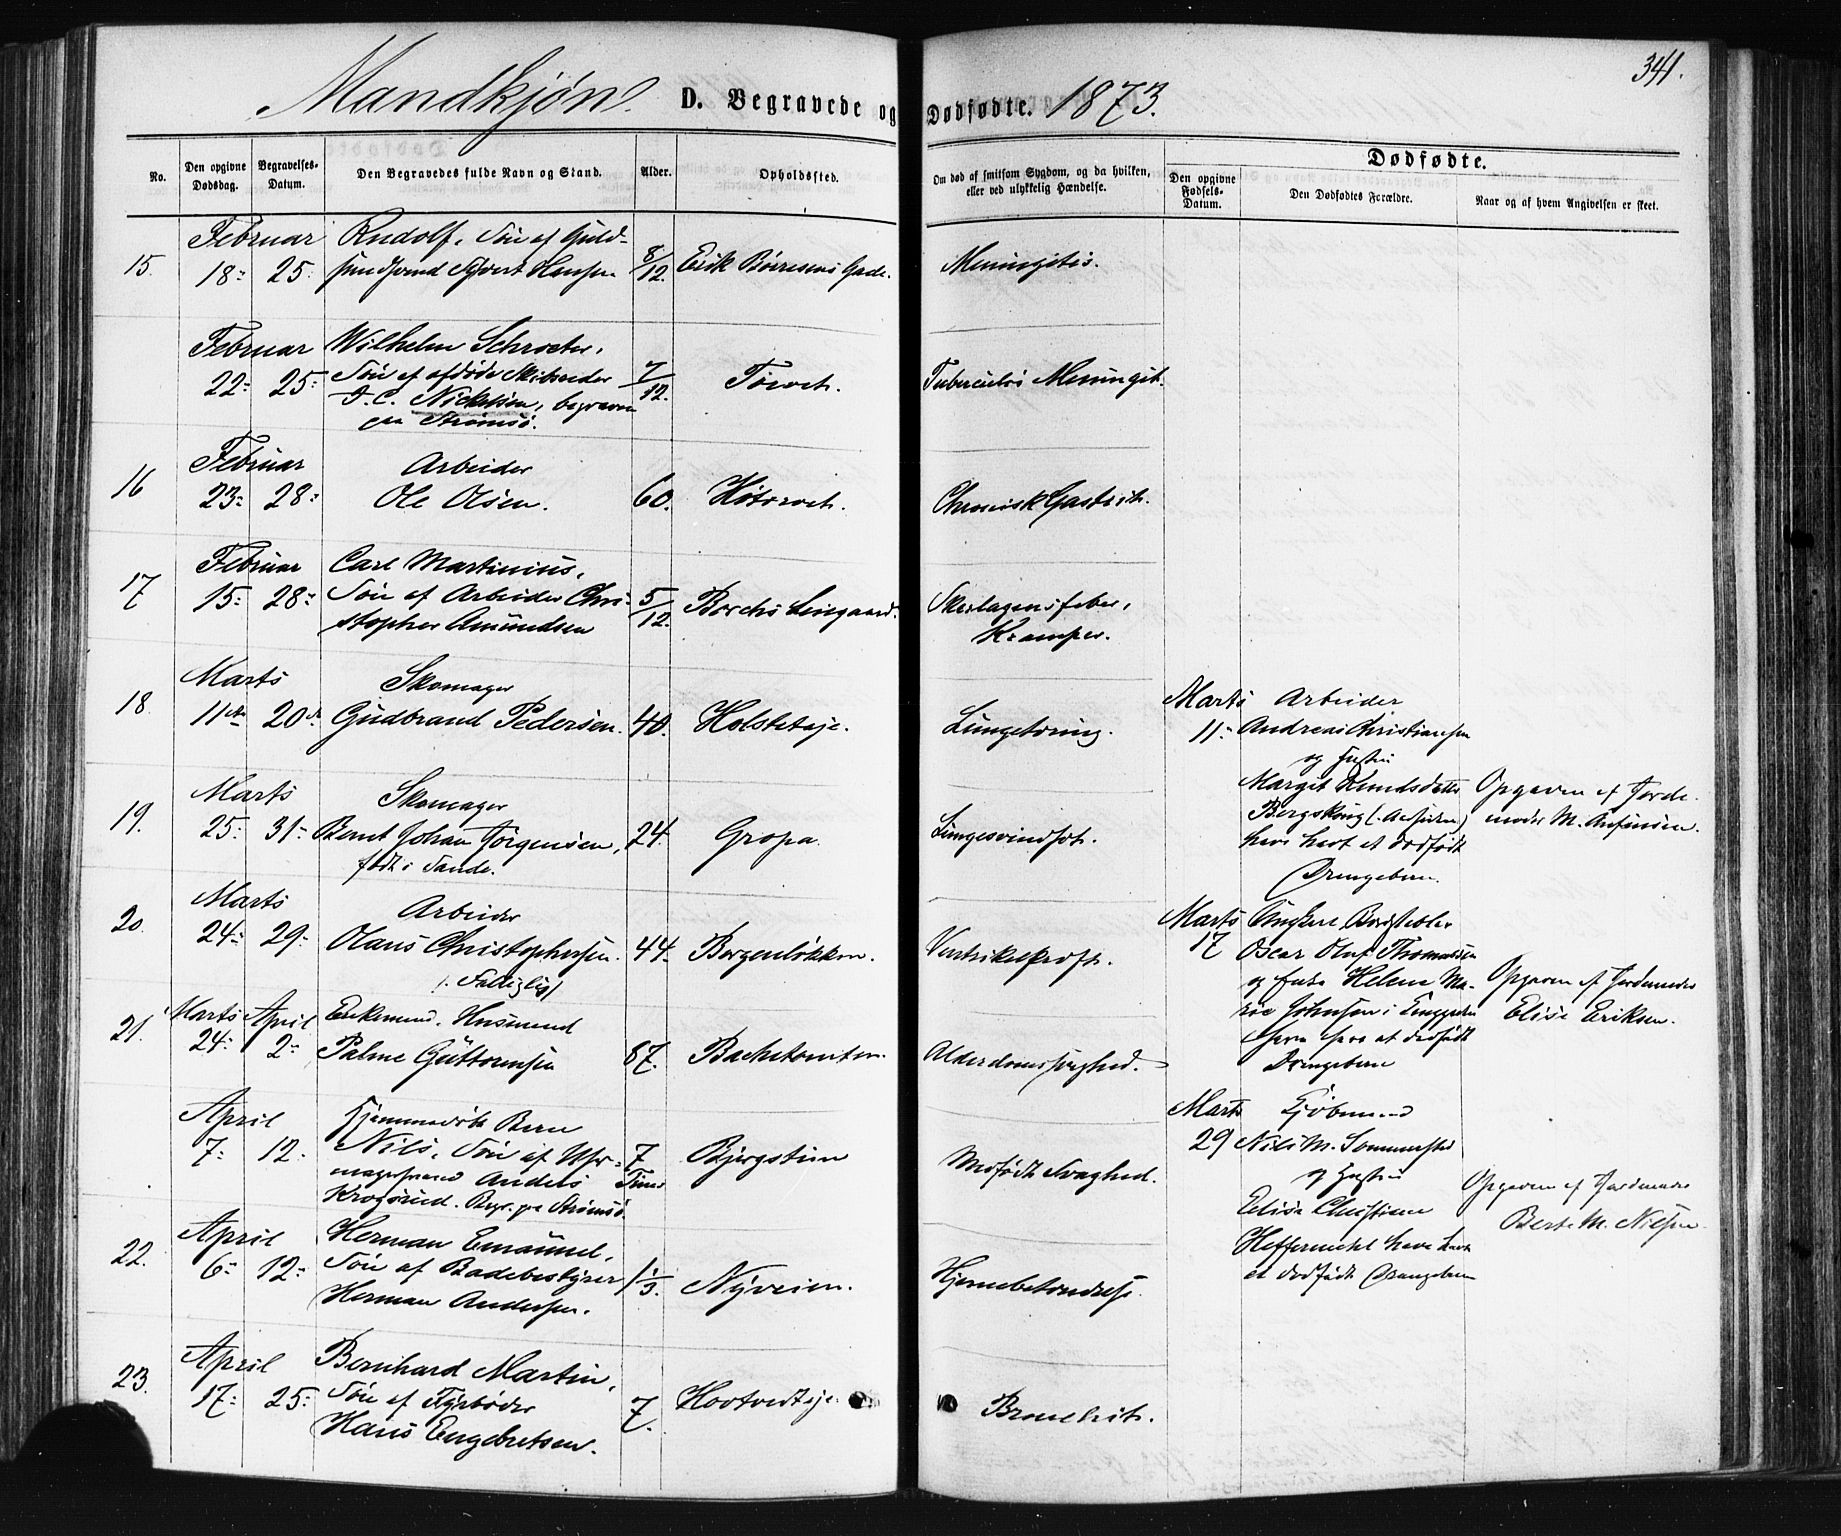 341.
Mandkjøn. D. Begravede og Dødfødte. 1873.
No.
Den opgivne Dødsdag.
Begravelses-Datum.
Den Begravedes fulde Navn og Stand.
Alder.
Opholdssted.
Om død af smitsom Sygdom, og da hvilken, eller ved ulykkelig Hændelse.
Dødfødte.
Den opgivne Fødsels-Datum.
Den Dødfødtes Forældre.
Naar og af hvem Angivelsen er skeet.
Februar Rudolf, Søn af Guld-
15. 18: 25: smedsvend Hansen 8/12. Erik Börresens Gade. Meningitis.
Februar Wilhelm Schroeter,
22: 25: Søn af afdøde Skibsreder 7/12. Torvet. Tuberculøs Meningit.
J. C. Nickelsen, begraven
paa Strømsø.
Februar Arbeider
16 23: 28: Ole Olsen. 60. Høtorvet. Chronisk Gastrit.
Februar Carl Martinius,
17 15: 28: Søn af Arbeider Chri- 5/12. Borchs Lengaard. Skarlagensfeber,
stopher Amundsen Kramper.
Marts Skomager
18. 11te 20de Gudbrand Pedersen. 40. Holsteteje. Lungetæring.
Marts Skomager
19. 25: 31: Bernt Johan Jørgensen, 24. Gropa. Lungesvindsot.
født i Sande.
Marts Arbeider
20. 24: 29: Olaus Christophersen. 44. Borgenløkken. Ventrikelkræft.
/: Fattiglig/
Marts April Enkemand, Husmand
21. 24: 2: Palme Guttormsen 87. Bachetomten. Alderdomssvaghed.
April Hjemmedøbt Barn
7: 12. Nils, Søn af Uhr- 7 Timer Bjergstien Medfødt Svaghed.
magersvend Anders
Krogsrud. Begr. pa Strømsø.
April Herman Emanuel,
22. 6: 12: Søn af Badebestyrer 1 1/3. Nyveien. Hjernebetændelse.
Herman Andersen.
April Bernhard Martin,
23. 17: 25: Søn af Fyrbøder 7. Hovtvedteje. Bronchit.
Hans Engebretsen.
Marts Arbeider
11: Andreas Christiansen
og Hustru
Margit Knudsdatter Opgaven af Jorde-
Bergskoug moder M. Anfinsen.
have havt et dødfødt
Drengebarn.
Marts Ungkarl
17 Oscar Oluf Thomassen
og Helene Ma- Opgaven af Jordemoder
rie Johnsen i Elise Eriksen.
have havt et dødfødt
Drengebarn
Marts Kjøbmand
29 Nils M. Sommersted
og Hustru Opgaven af Jordemoder
Elise Christiane Berte M. Nilsen.
Heffermehl have havt
et dødfødt Drengebarn